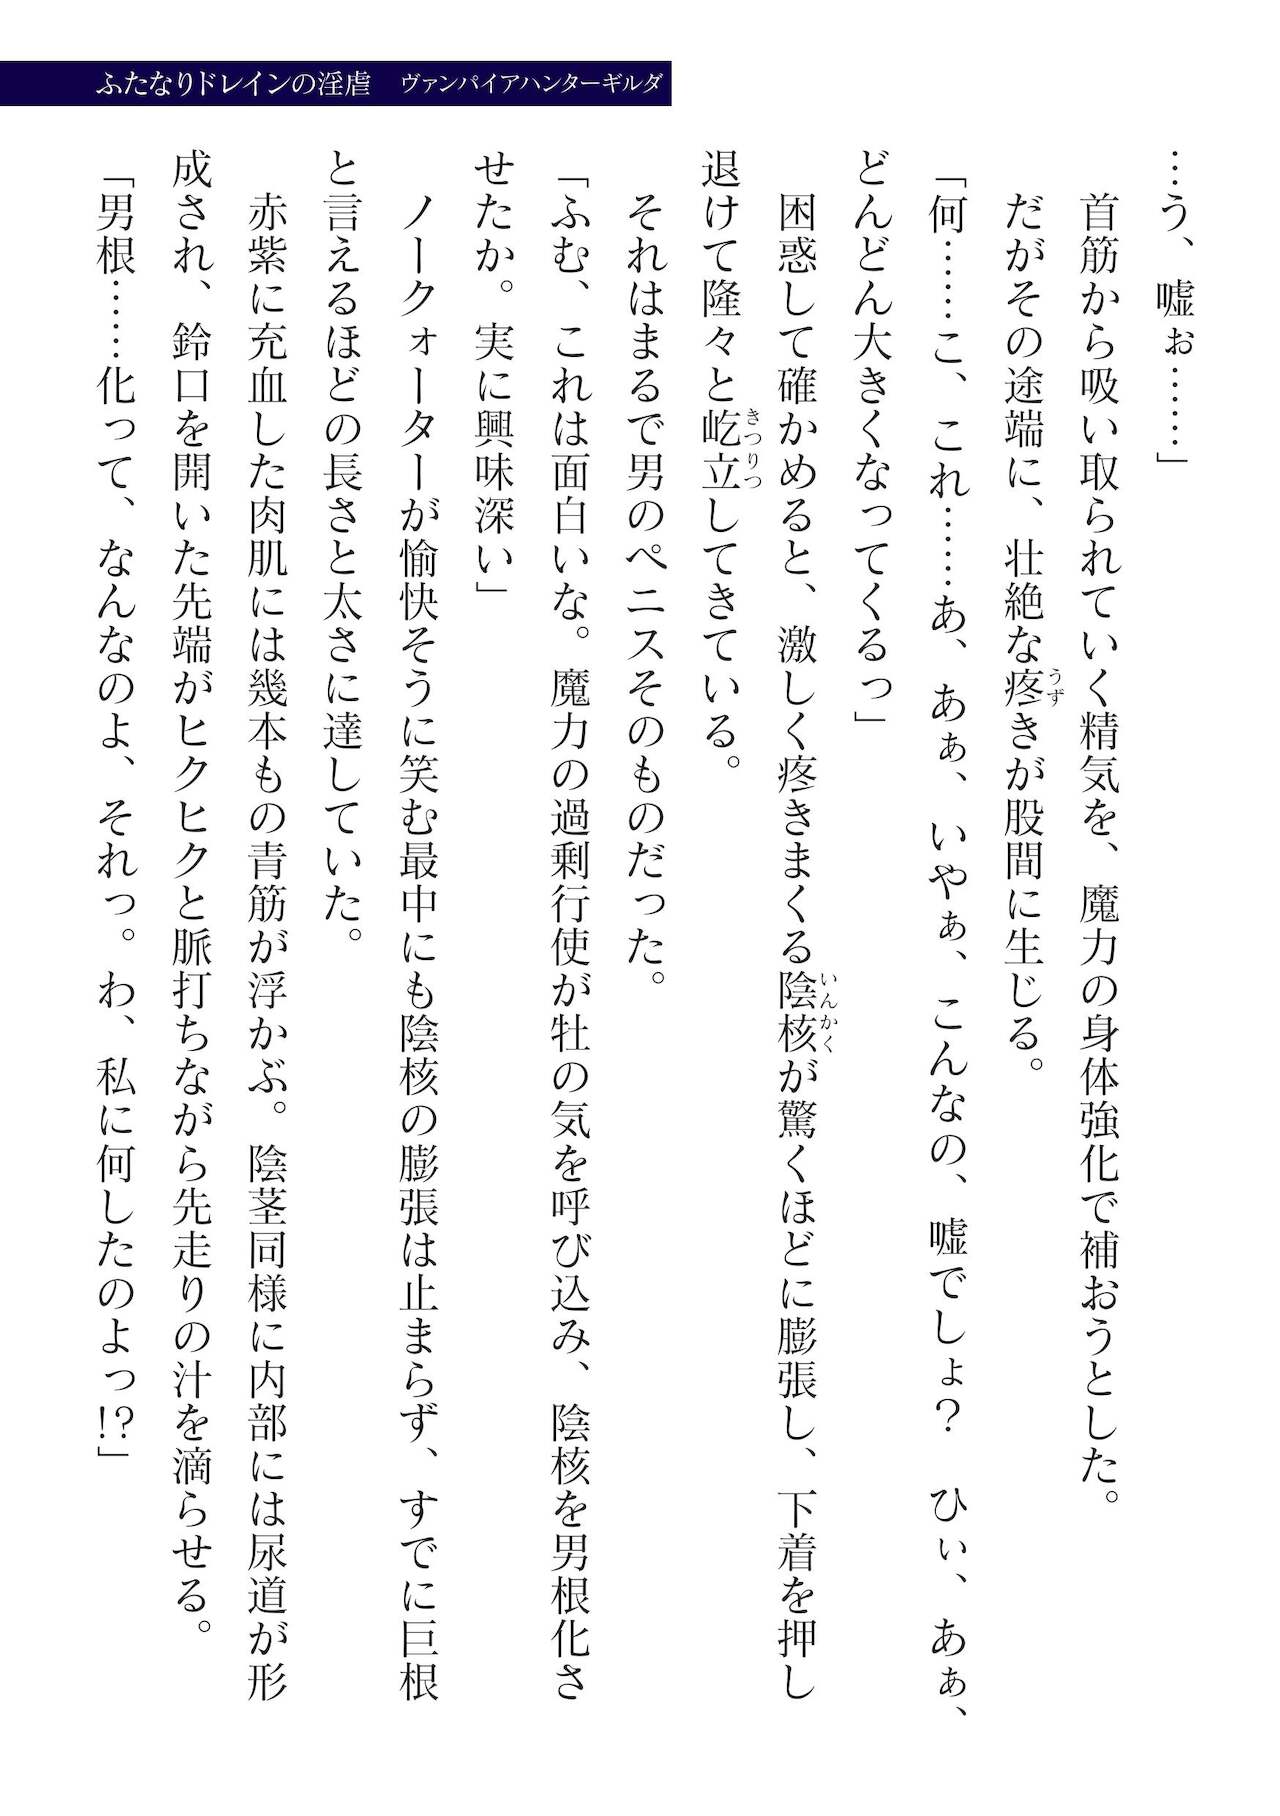 ふたなりドレインの淫虐　ヴァンパイアハンターギルダ
…う、嘘ぉ……」
　首筋から吸い取られていく精気を、魔力の身体強化で補おうとした。
　だがその途端に、壮絶な疼きが股間に生じる。
「何……こ、これ……あ、あぁ、いやぁ、こんなの、嘘でしょ？　ひぃ、あぁ、
どんどん大きくなってくるっ」
　困惑して確かめると、激しく疼きまくる陰核が驚くほどに膨張し、下着を押し
退けて隆々と屹立してきている。
　それはまるで男のペニスそのものだった。
「ふむ、これは面白いな。魔力の過剰行使が牡の気を呼び込み、陰核を男根化さ
せたか。実に興味深い」
　ノークォーターが愉快そうに笑む最中にも陰核の膨張は止まらず、すでに巨根
と言えるほどの長さと太さに達していた。
　赤紫に充血した肉肌には幾本もの青筋が浮かぶ。陰茎同様に内部には尿道が形
成され、鈴口を開いた先端がヒクヒクと脈打ちながら先走りの汁を滴らせる。
「男根……化って、なんなのよ、それっ。わ、私に何したのよっ!?」